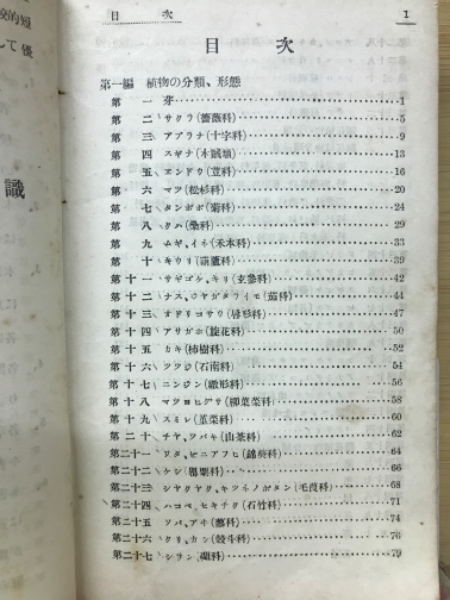 目 次 1
目 次
第一編 植物の分類、形態
第 一 芽 1
第 二 サクラ(薔薇科) 5
第 三 アブラナ(十字科) 9
第 四 スギナ(木賊類) 13
第 五 エンドウ(荳科) 16
第 六 マツ(松杉科) 20
第 七 タンポポ(菊科) 24
第 八 クハ(桑科) 29
第 九 ムギ、イネ(禾本科) 33
第 十 キウリ(葫蘆科) 39
第十一 サギゴケ、キリ(玄參科) 42
第十二 ナス、ジヤガタライモ(茄科) 44
第十三 オドリコサウ(唇形科) 47
第十四 アサガホ(旋花科) 50
第十五 カキ(柿樹科) 52
第十六 ツツジ(石南科) 54
第十七 ニンジン(繖形科) 56
第十八 マツヨヒグサ(柳葉菜科) 58
第十九 スミレ(菫菜科) 60
第二十 チヤ、ツバキ(山茶科) 62
第二十一 ワタ、ゼニアフヒ(錦葵科) 64
第二十二 ケシ(罌粟科) 66
第二十三 シヤクヤク、キツネノボタン(毛茛科) 68
第二十四 ハコベ、セキチク(石竹科) 71
第二十五 ソバ、アヰ(蓼科) 74
第二十六 クリ、カシ(殻斗科) 76
第二十七 シラン(蘭科) 79
識